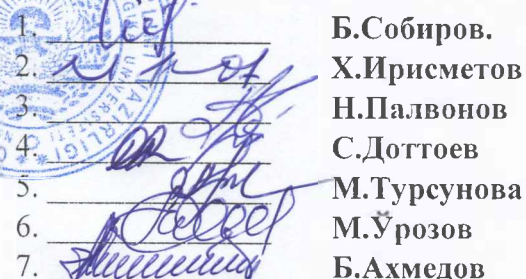 1. Б.Собиров.
2. Х.Ирисметов
3. Н.Палвонов
4. С.Доттоев
5. М.Турсунова
6. М.Ўрозов
7. Б.Ахмедов